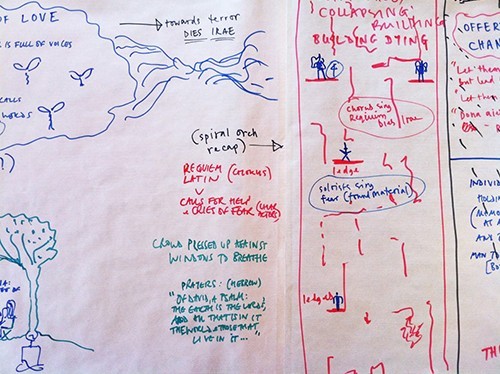 OF LOVE
IS FULL OF VOICES
CALLS
WORDS
?)
towards terror
DIES IRAE
(spiral orch
recap)
REQUIEM (CHORUS)
LATIN
V
CALLS FOR HELP
& CRIES OF FEAR (CHAR
ACTERS)
CROWD PRESSED UP AGAINST
WINDOWS TO BREATHE
PRAYERS: (HEBREW)
"OF DAVID, A PSALM:
THE EARTH IS THE LORD'S,
AND ALL THAT IS IN IT
THE WORLD & THOSE THAT
LIVE IN IT..."
COLLAPSING BUILDING
BUILDING DYING
chorus sing
Requiem
Dies Irae
ledge
soloists sing
fear (found material)
ledge
OFFER
CHA
"Let them
but lead
"Let them
"Dona
INDIVID
HOLDIN
(MOMEN
AT A
AND
MAN TO
[BO
TH